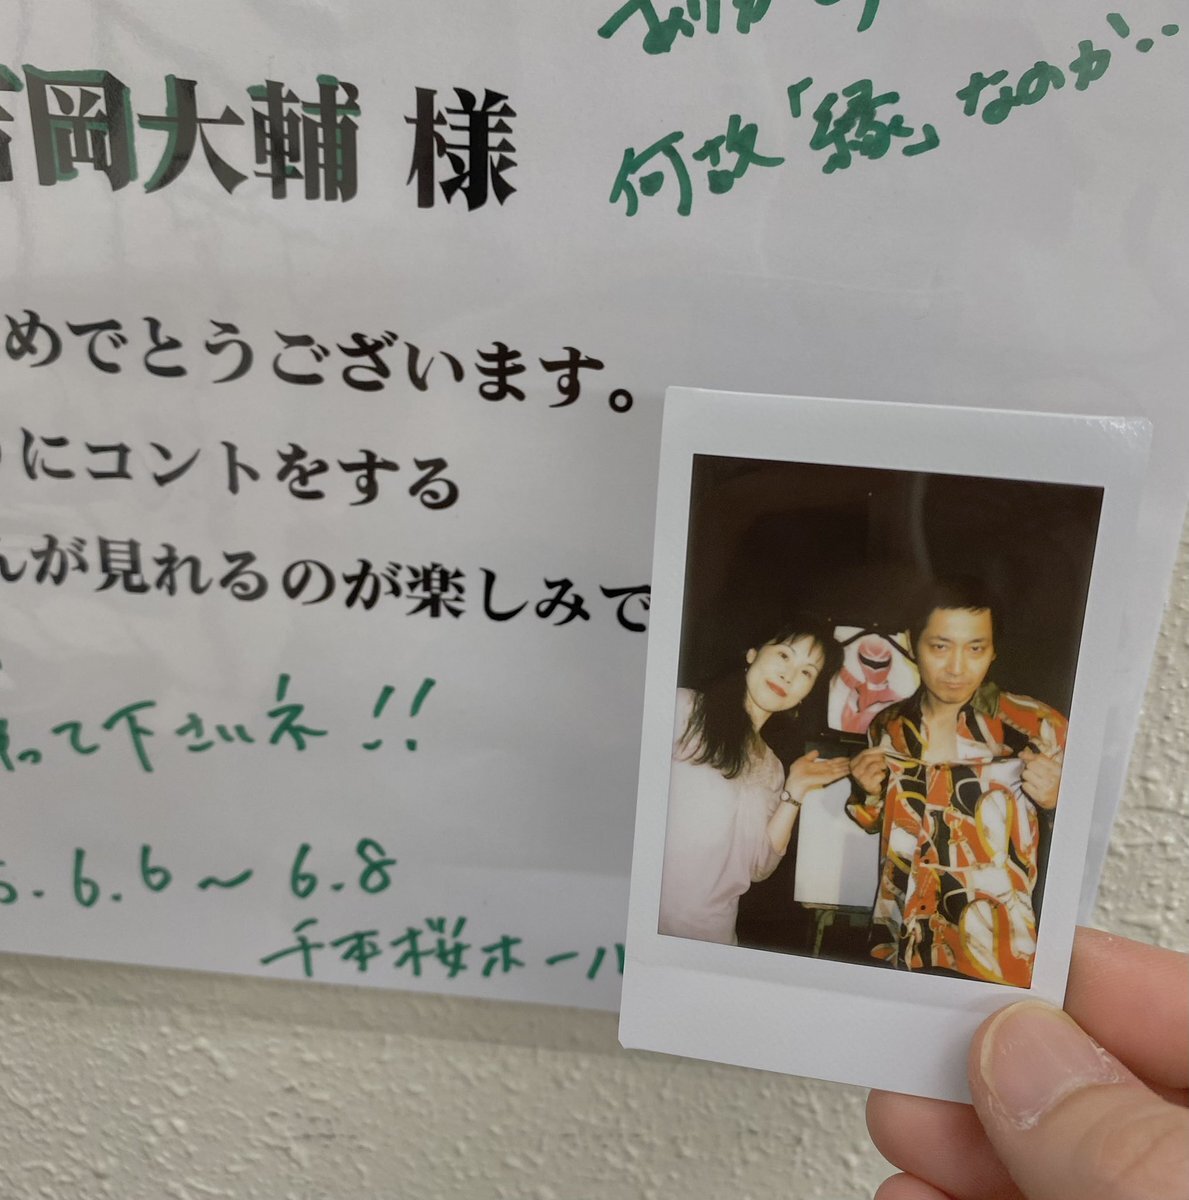 ありがとう
何故「縁」なのか‥
吉岡大輔 様
めでとうございます。
にコントをする
んが見れるのが楽しみで
って下さいネ!!
5.6.6～6.8
千本桜ホール